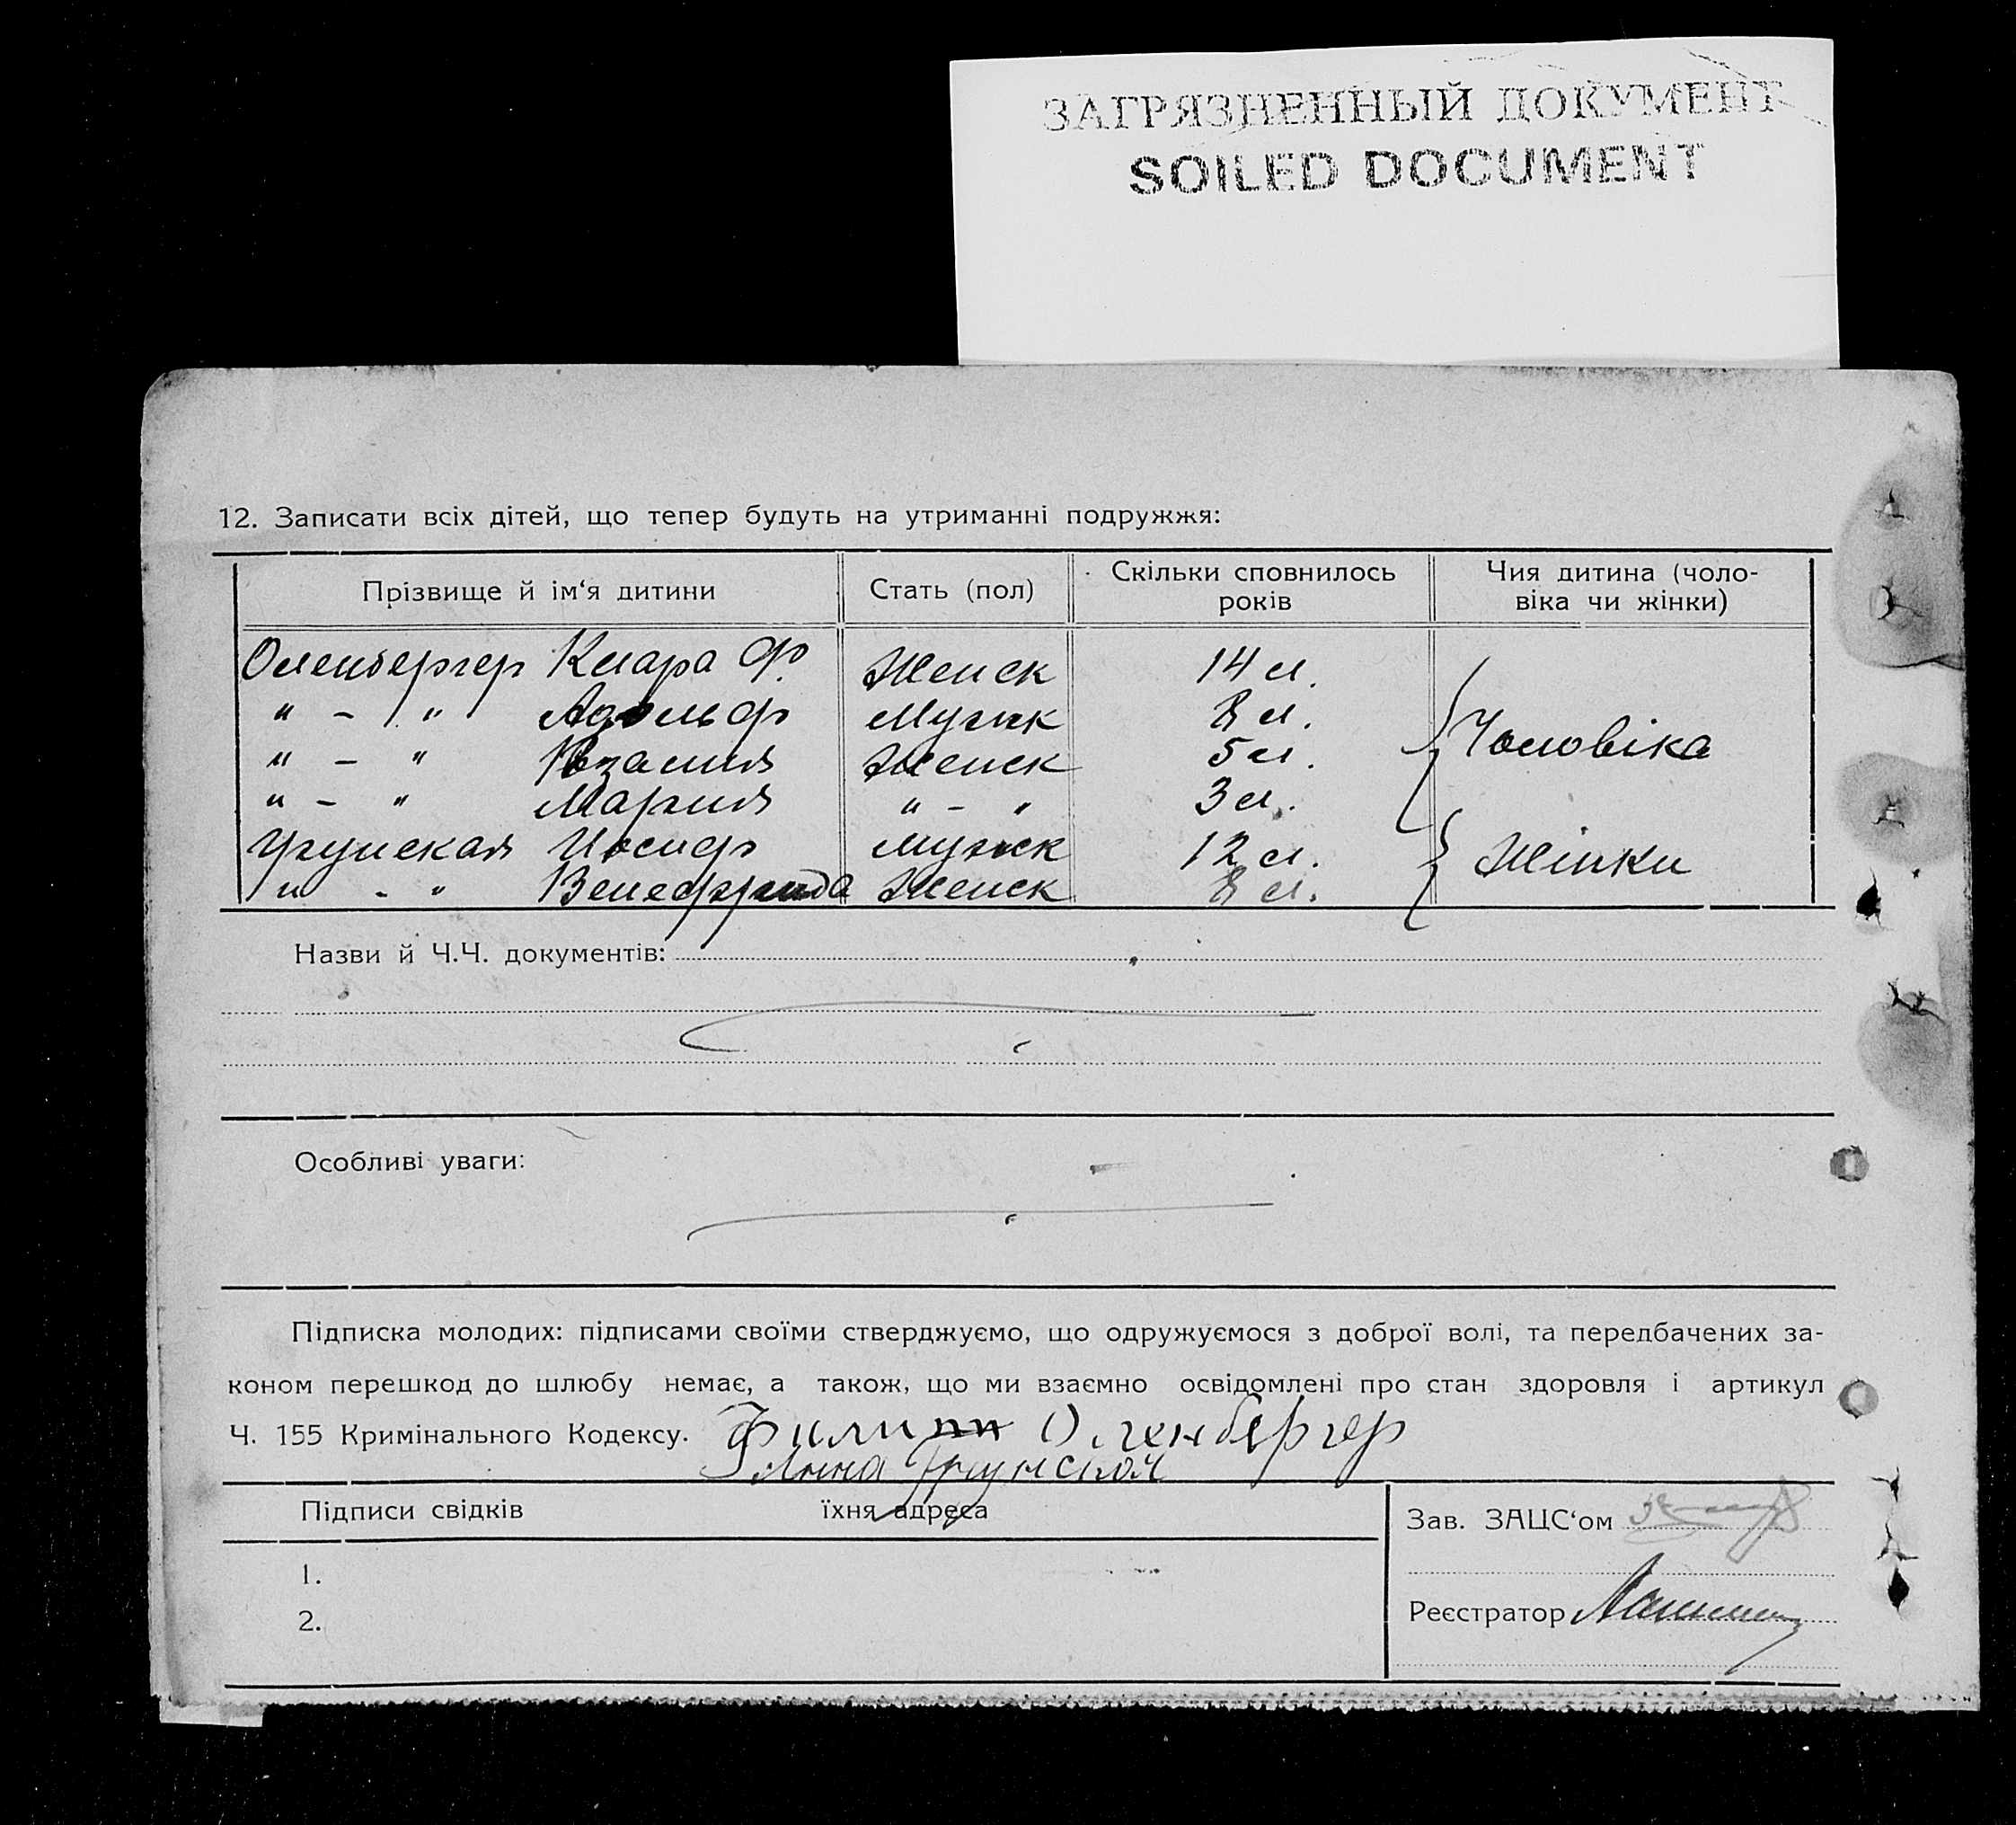 ЗАГРЯЗНЕННЫЙ ДОКУМЕНТ
SOILED DOCUMENT
12. Записати всіх дітей, що тепер будуть на утриманні подружжя:
Прізвище й ім‘я дитини Стать (пол) Скільки сповнилось років Чия дитина (чоло-віка чи жінки)
Оленбергер Клара Ф. Женск 14 л.
" - " Адольф Мужск 8 л.
" - " Розалия Женск 5 л. Чоловіка
" - " Мария " - " 3 л.
Иосиф Мужск 12 л. Жінки
" - " Женск 8 л.
Назви й Ч.Ч. документів:
Особливі уваги:
Підписка молодих: підписами своїми стверджуємо, що одружуємося з доброї волі, та передбачених за-
коном перешкод до шлюбу немає, а також, що ми взаємно освідомлені про стан здоровля і артикул
Ч. 155 Кримінального Кодексу. Филипп Оленбергер
Анна
Підписи свідків їхня адреса
Зав. ЗАЦС‘ом
1.
Реєстратор
2.